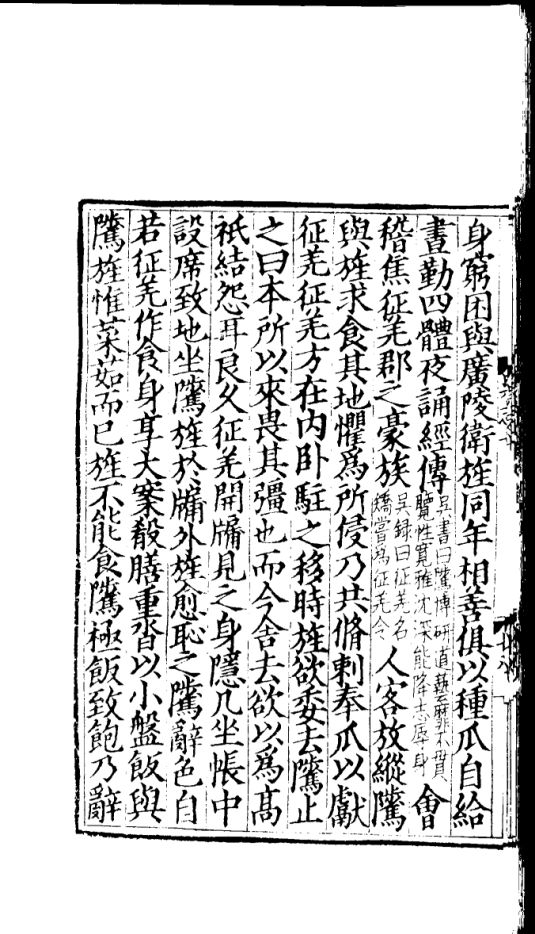 身窮困與廣陵衛旌同年相善俱以種瓜自給
晝勤四體夜誦經傳
吳書曰隲博研道藝靡不貫
覽性寛雅沈深能降志辱身
會
稽焦征羌郡之豪族
吳録曰征羌名
矯嘗爲征羌令
人客放縱隲
與旌求食其地懼爲所侵乃共脩刺奉瓜以獻
征羌征羌方在内卧駐之移時旌欲委去隲止
之曰本所以來畏其彊也而今舍去欲以爲高
祇結怨耳良久征羌開牖見之身隱几坐帳中
設席致地坐隲旌於牖外旌愈恥之隲辭色自
若征羌作食身享大案殽膳重沓以小盤飯與
隲旌惟菜茹而已旌不能食隲極飯致飽乃辭